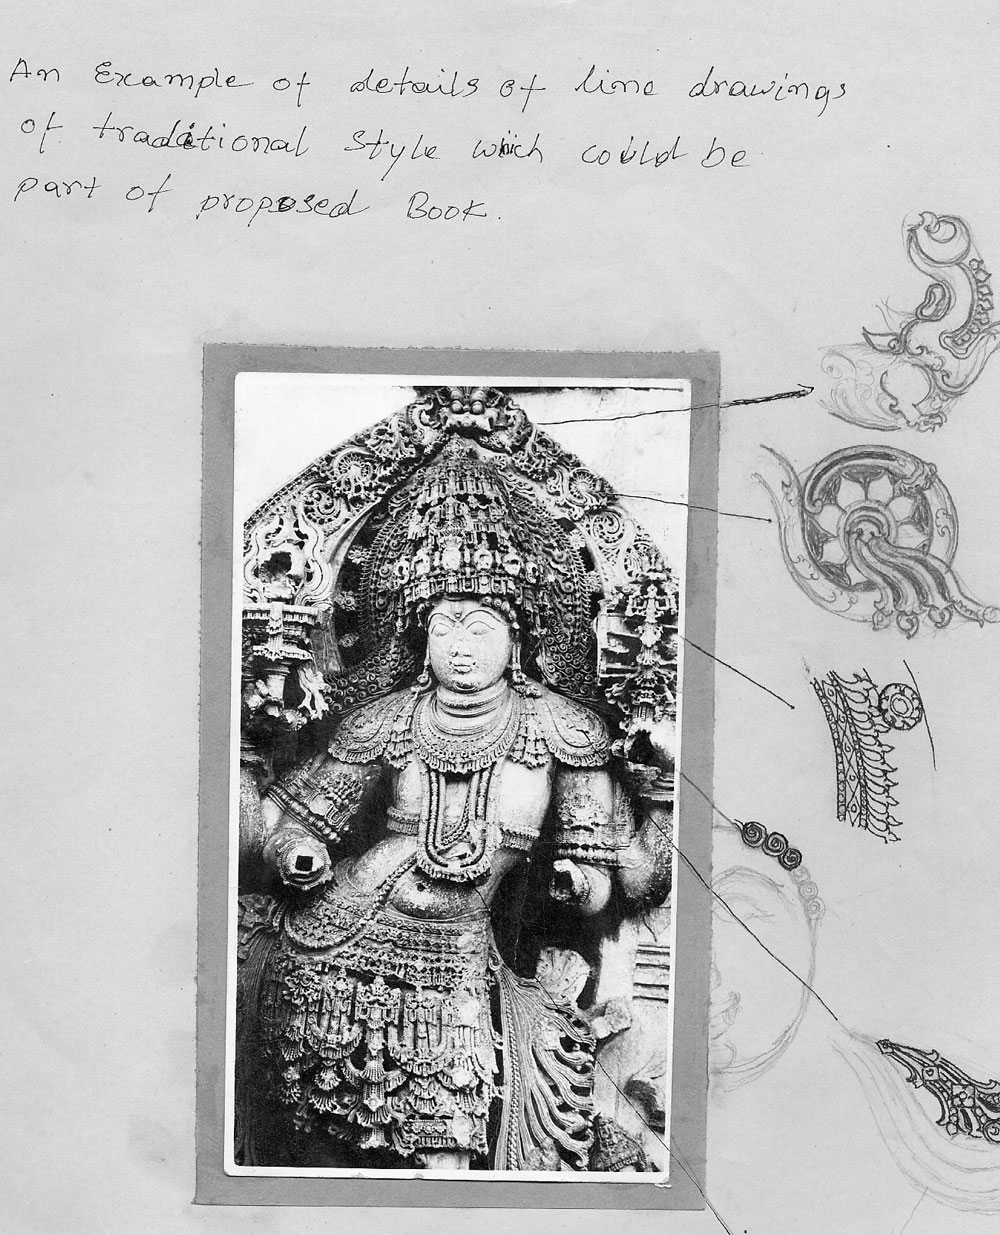 An Example of details of line drawings
of traditional style which could be
part of proposed Book.